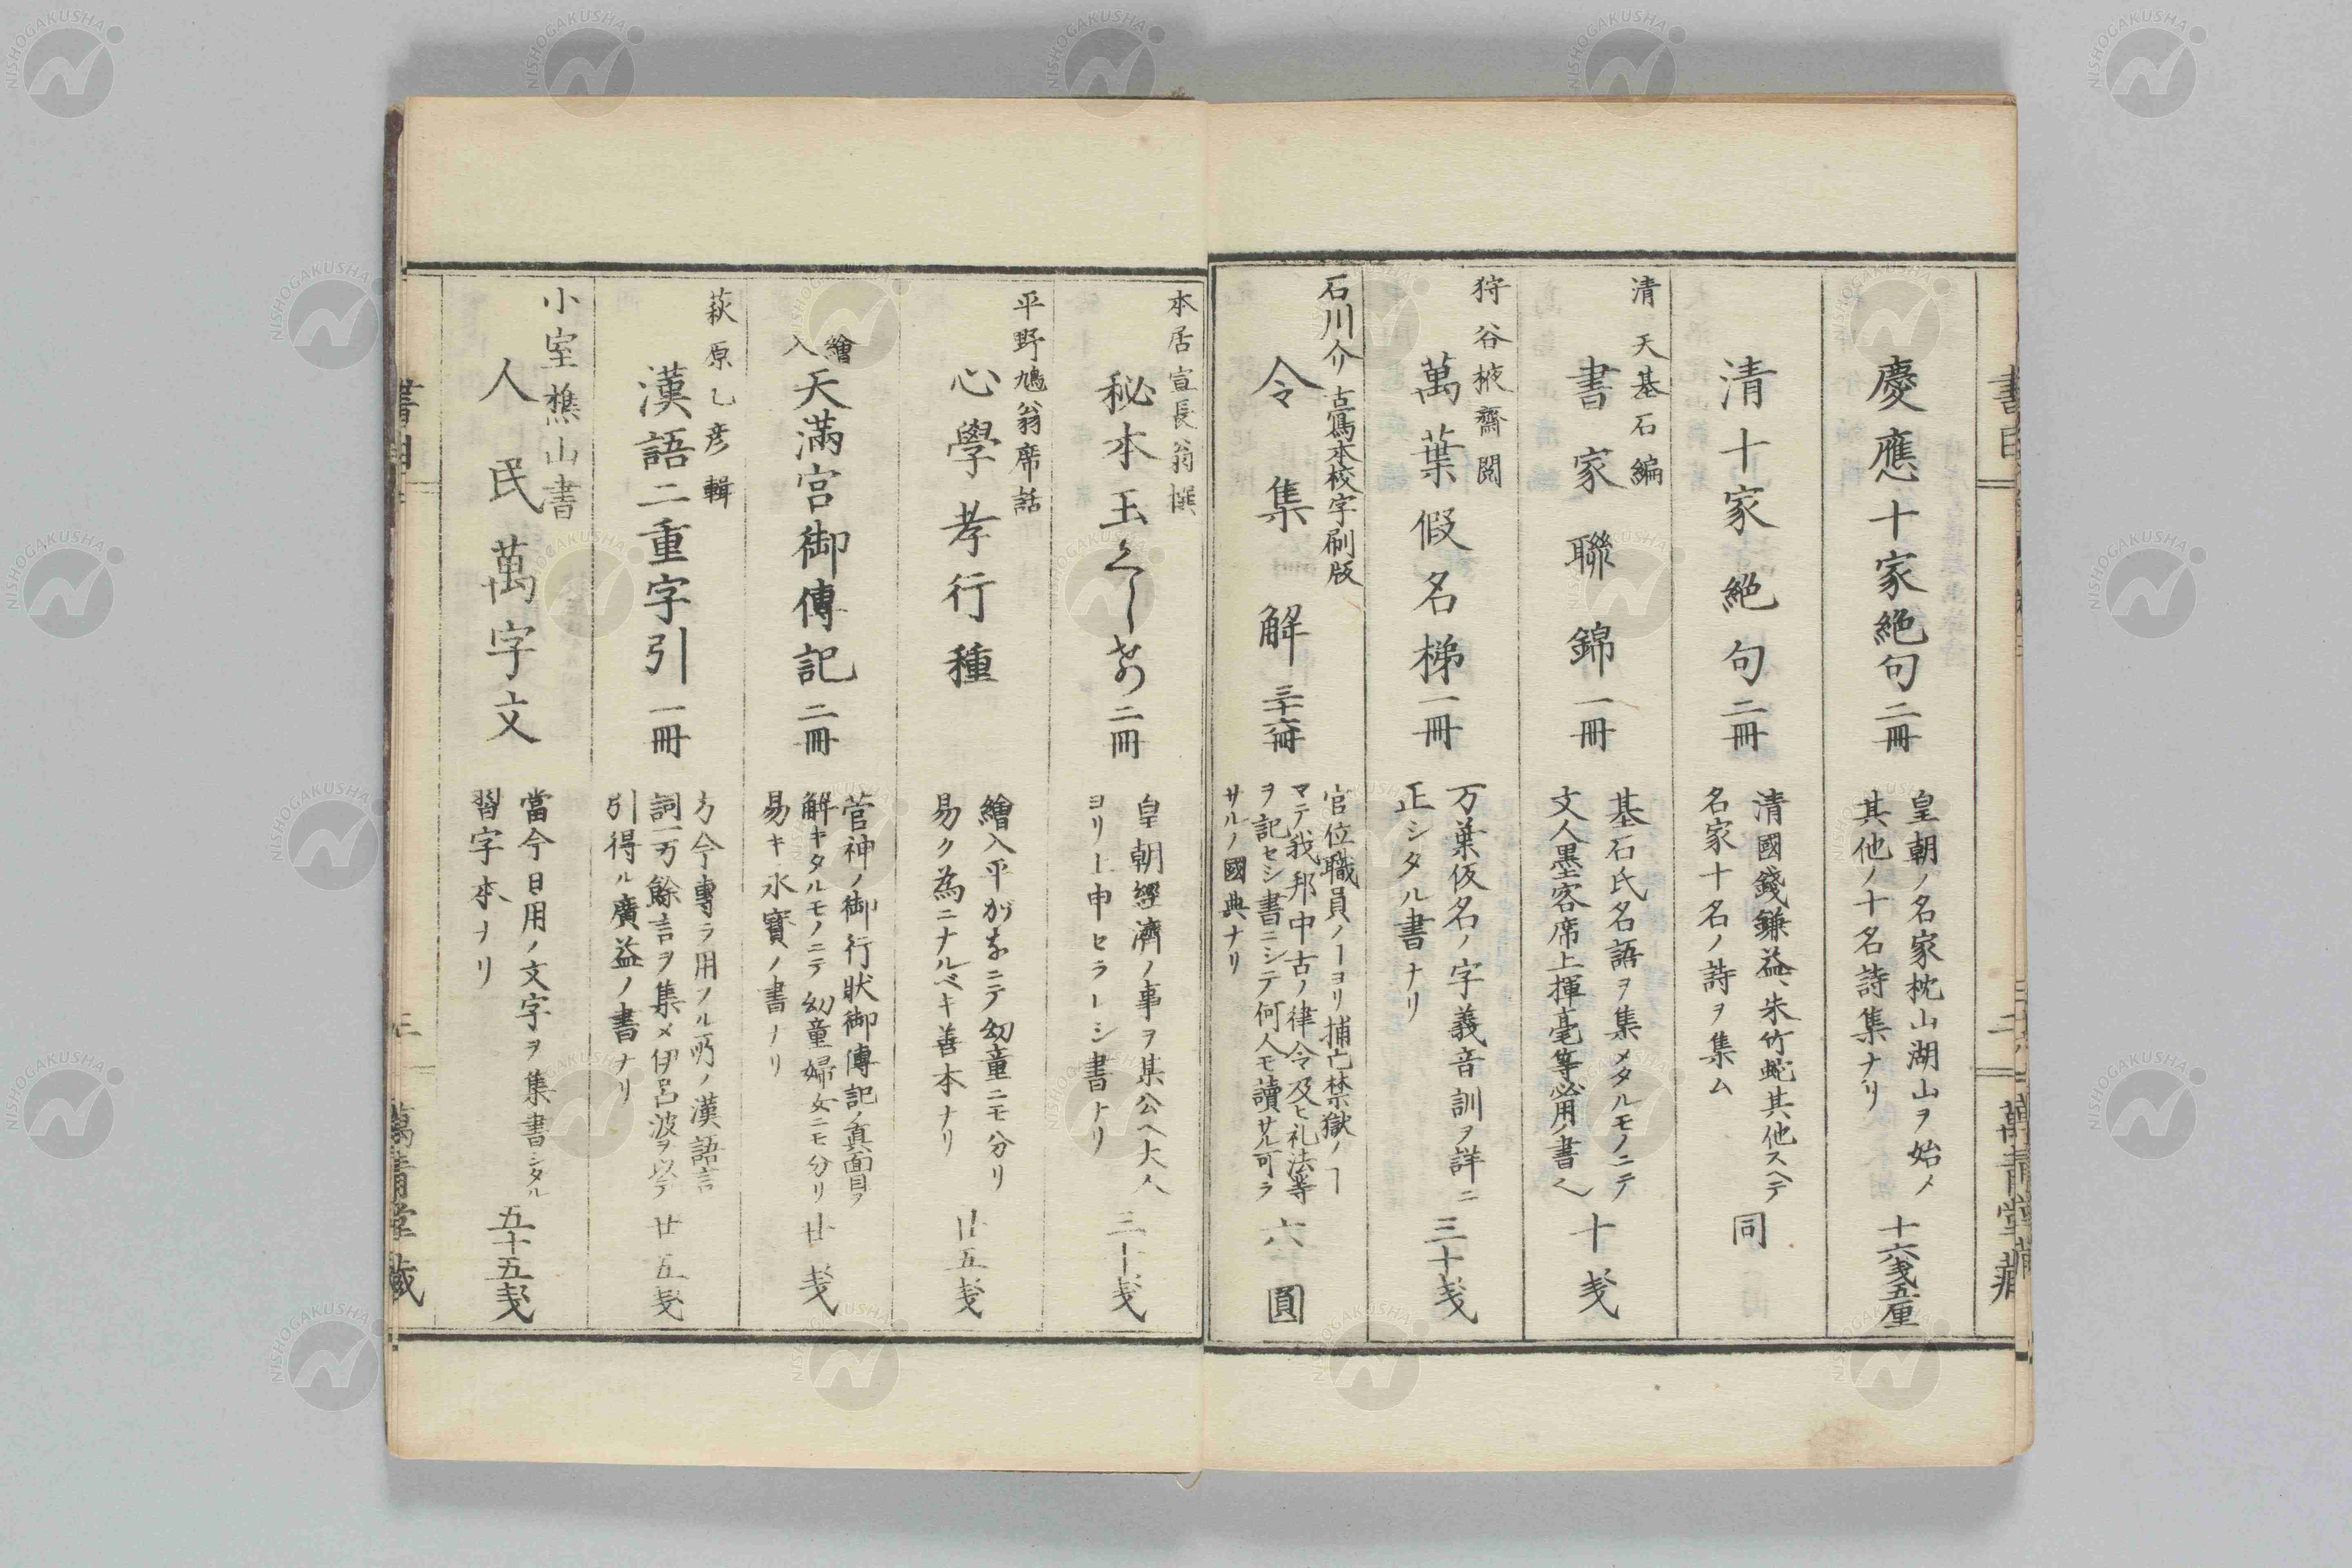 慶應十家絶句二冊
皇朝ノ名家枕山湖山ヲ始メ
其他ノ十名詩集ナリ
十六戔五厘
清十家絶句二冊
清國錢鎌益、朱竹蛇其他スヘテ
名家十名ノ詩ヲ集ム
同
清 天基石編
書家聯錦一冊
基石氏名語ヲ集メタルモノニテ
文人墨客席上揮毫等必用ノ書〆
十戔
狩谷掖齋閲
萬葉假名梯一冊
万葉仮名ノ字義音訓ヲ詳ニ
正シタル書ナリ
三十戔
石川介 古寫本校字刷版
令集解三十六冊
官位職員ノヿヨリ捕亡禁獄ノヿ
マテ我邦中古ノ律令及ヒ礼法等
ヲ記セシ書ニシテ何人モ讀サル可ラ
サルノ國典ナリ
六圓
本居宣長翁撰
秘本玉くしげ二冊
皇朝經濟ノ事ヲ某公ヘ大人
ヨリ上申セラーシ書ナリ
三十戔
平野鳩翁席話
心學孝行種
繪入平がなニテ幼童ニモ分リ
易ク為ニナルベキ善本ナリ
廿五戔
繪入
天滿宮御傳記二冊
菅神ノ御行狀御傳記ノ眞面目ヲ
解キタルモノニテ幼童婦女ニモ分リ
易キ永寳ノ書ナリ
廿戔
萩原乙彦輯
漢語二重字引一冊
方今專ラ用フル所ノ漢語言
詞一万餘言ヲ集メ伊呂波ヲ以テ
引得ル廣益ノ書ナリ
廿五戔
小室樵山書
人民萬字文
當今日用ノ文字ヲ集書シタル
習字本ナリ
五十五戔
萬青堂藏